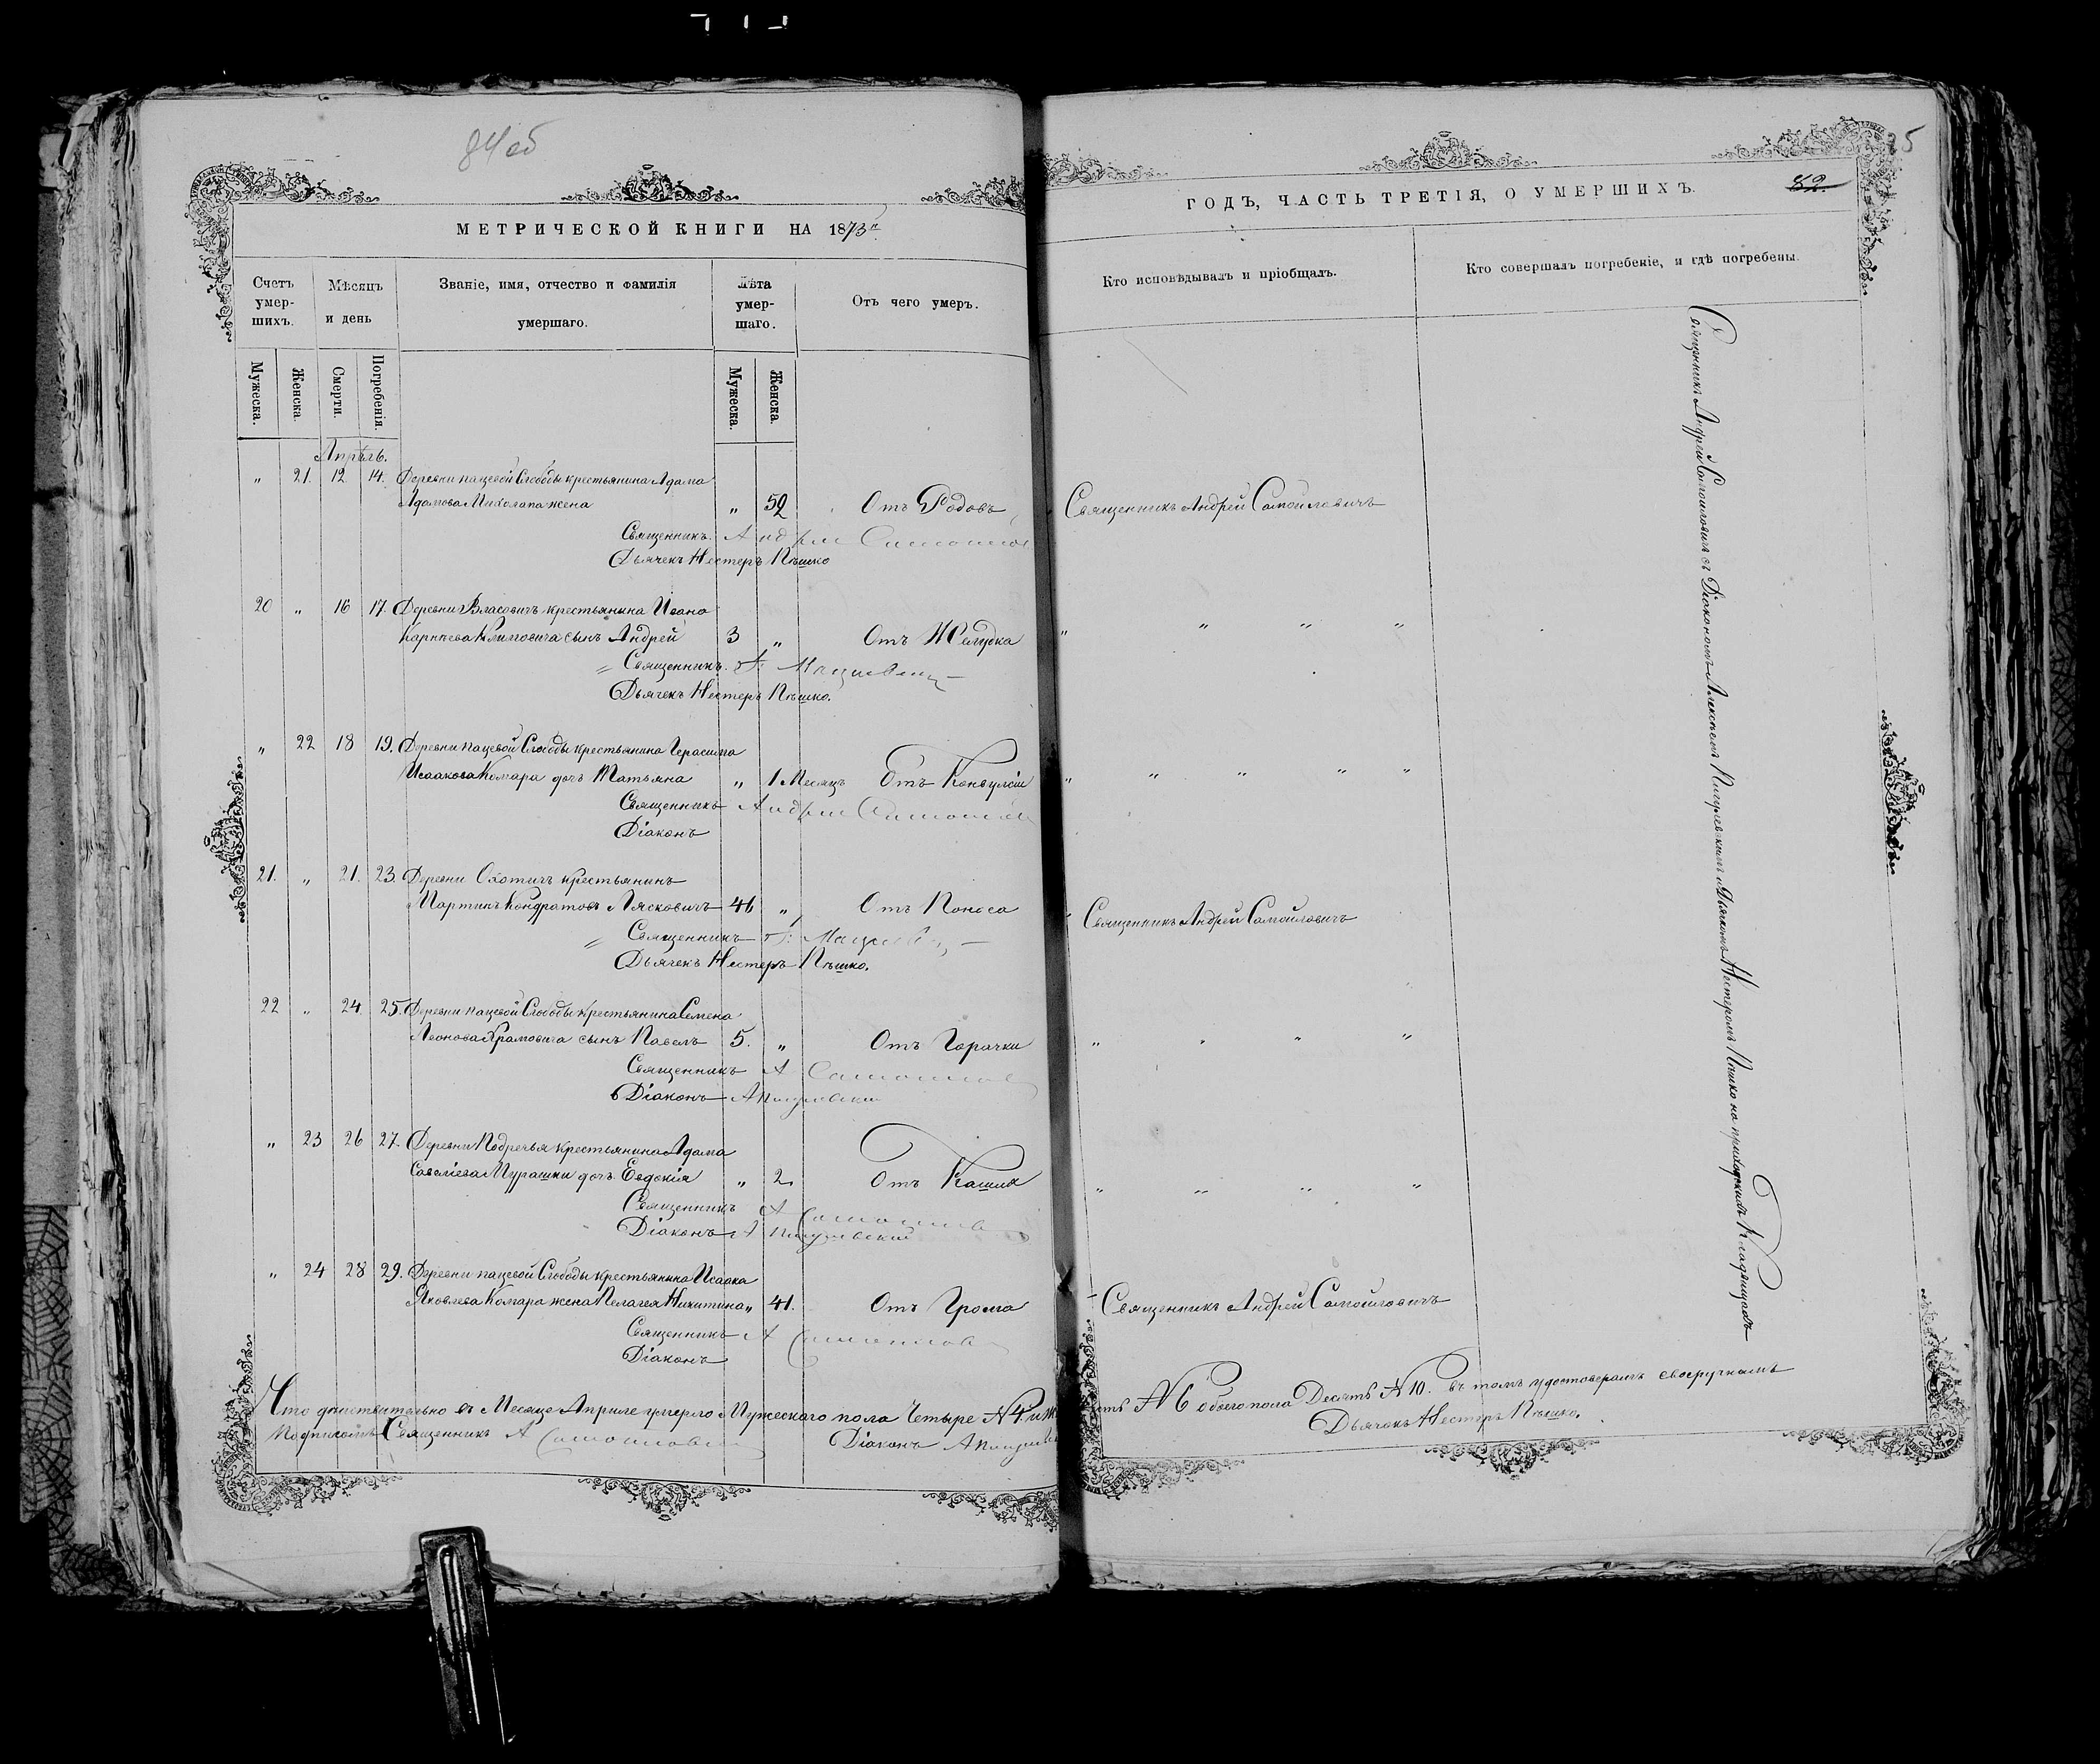 84 об
МЕТРИЧЕСКОЙ КНИГИ НА 1873й
Счетъ умер-шихъ.
Мѣсяцъ и день
Званіе, имя, отчество и фамилія умершаго.
Лѣта умер-шаго.
Отъ чего умеръ.
Мужеска.
Женска.
Смерти.
Погребенія.
Мужеска.
Женска.
Апрѣль.
„ 21. 12 14. Деревни пацевой Слободы крестьянина Адама
Адамова Михолапа жена „ 52 Отъ Родовъ
Священникъ Андрей Самойлов
Дьячекъ Нестеръ Пѣшко
20 „ 16 17. Деревни Власовичъ крестьянина Ивана
Карнѣева Климовича сынъ Андрей 3 „ Отъ Желудка
Священникъ
Дьячекъ Нестеръ Пѣшко.
„ 22 18 19. Деревни пацевой Слободы крестьянина Герасима
Исаакова Комара дочь Татьяна „ 1 Месяцъ Отъ Конвулсіи
Священникъ Андрей Самойлов
Діаконъ
21. „ 21. 23. Деревни Охотичъ крестьянинъ
Мартинъ Кондратовъ Лясковичъ 46 „ Отъ Поноса
Священникъ
Дьячекъ Нестеръ Пѣшко.
22 „ 24 25. Деревни пацевой Слободы крестьянина Семена
Леонова Храмовича сынъ Павелъ 5. „ Отъ Горачки
Священникъ А Самойлов
Діаконъ А Пигулевскій
„ 23 26 27. Деревни Подречья крестьянина Адама
Савеліева Мурашки дочь Евдокія „ 2. Отъ Кашля
Священникъ А Самойлов
Діаконъ А Пигулевскій
„ 24 28 29. Деревни пацевой Слободы крестьянина Исаака
Яковлева Комара жена Пелагея Никитина „ 41. Отъ Грома
Священникъ А Самойлов
Діаконъ
Что дѣйствительно въ Месяце Априле умерло Мужескаго пола Четыре №4 и Ж
Подписомъ Священникъ А Самойлов Діаконъ А Пигулев
85
82.
ГОДЪ, ЧАСТЬ ТРЕТІЯ, О УМЕРШИХЪ.
Кто исповѣдывалъ и пріобщалъ.
Кто совершалъ погребеніе, и гдѣ погребены.
Священникъ Андрей Самойловичъ
„ „ „ „
„ „ „ „ „
Священникъ Андрей Самойловичъ
„ „ „ „
„ „ „ „
Священникъ Андрей Самойловичъ
Священникъ Андрей Самойловичъ съ Діакономъ Алексеемъ Пигулевскимъ и Дьячкомъ Нестеромъ Пѣшко на приходскихъ Кладвищахъ
сть №6 обоего пола Десять №10. въ томъ удостовераемъ своеручнымъ
Дьячекъ Нестеръ Пѣшко.